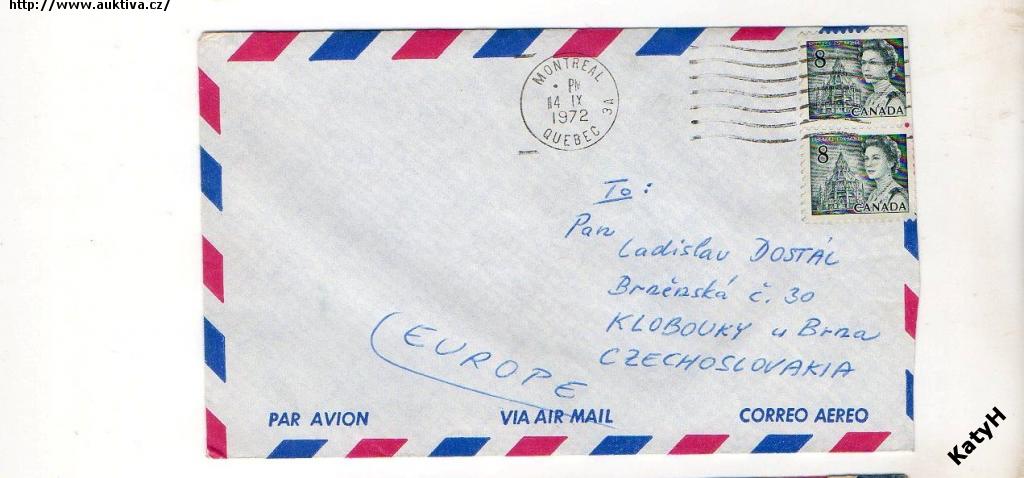 http://www.auktiva.cz/
MONTREAL
PM
14 IX
1972
QUEBEC 3A
8
CANADA
8
CANADA
To:
Pan
Ladislav DOSTÁL
Brněnská č. 30
KLOBOUKY u Brna
CZECHOSLOVAKIA
(EUROPE
PAR AVION
VIA AIR MAIL
CORREO AEREO
KatyH